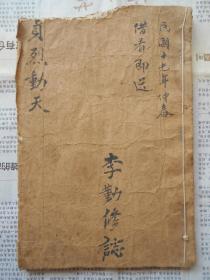 民國十七年仲春
借看即还
李勤修誌
貞烈動天